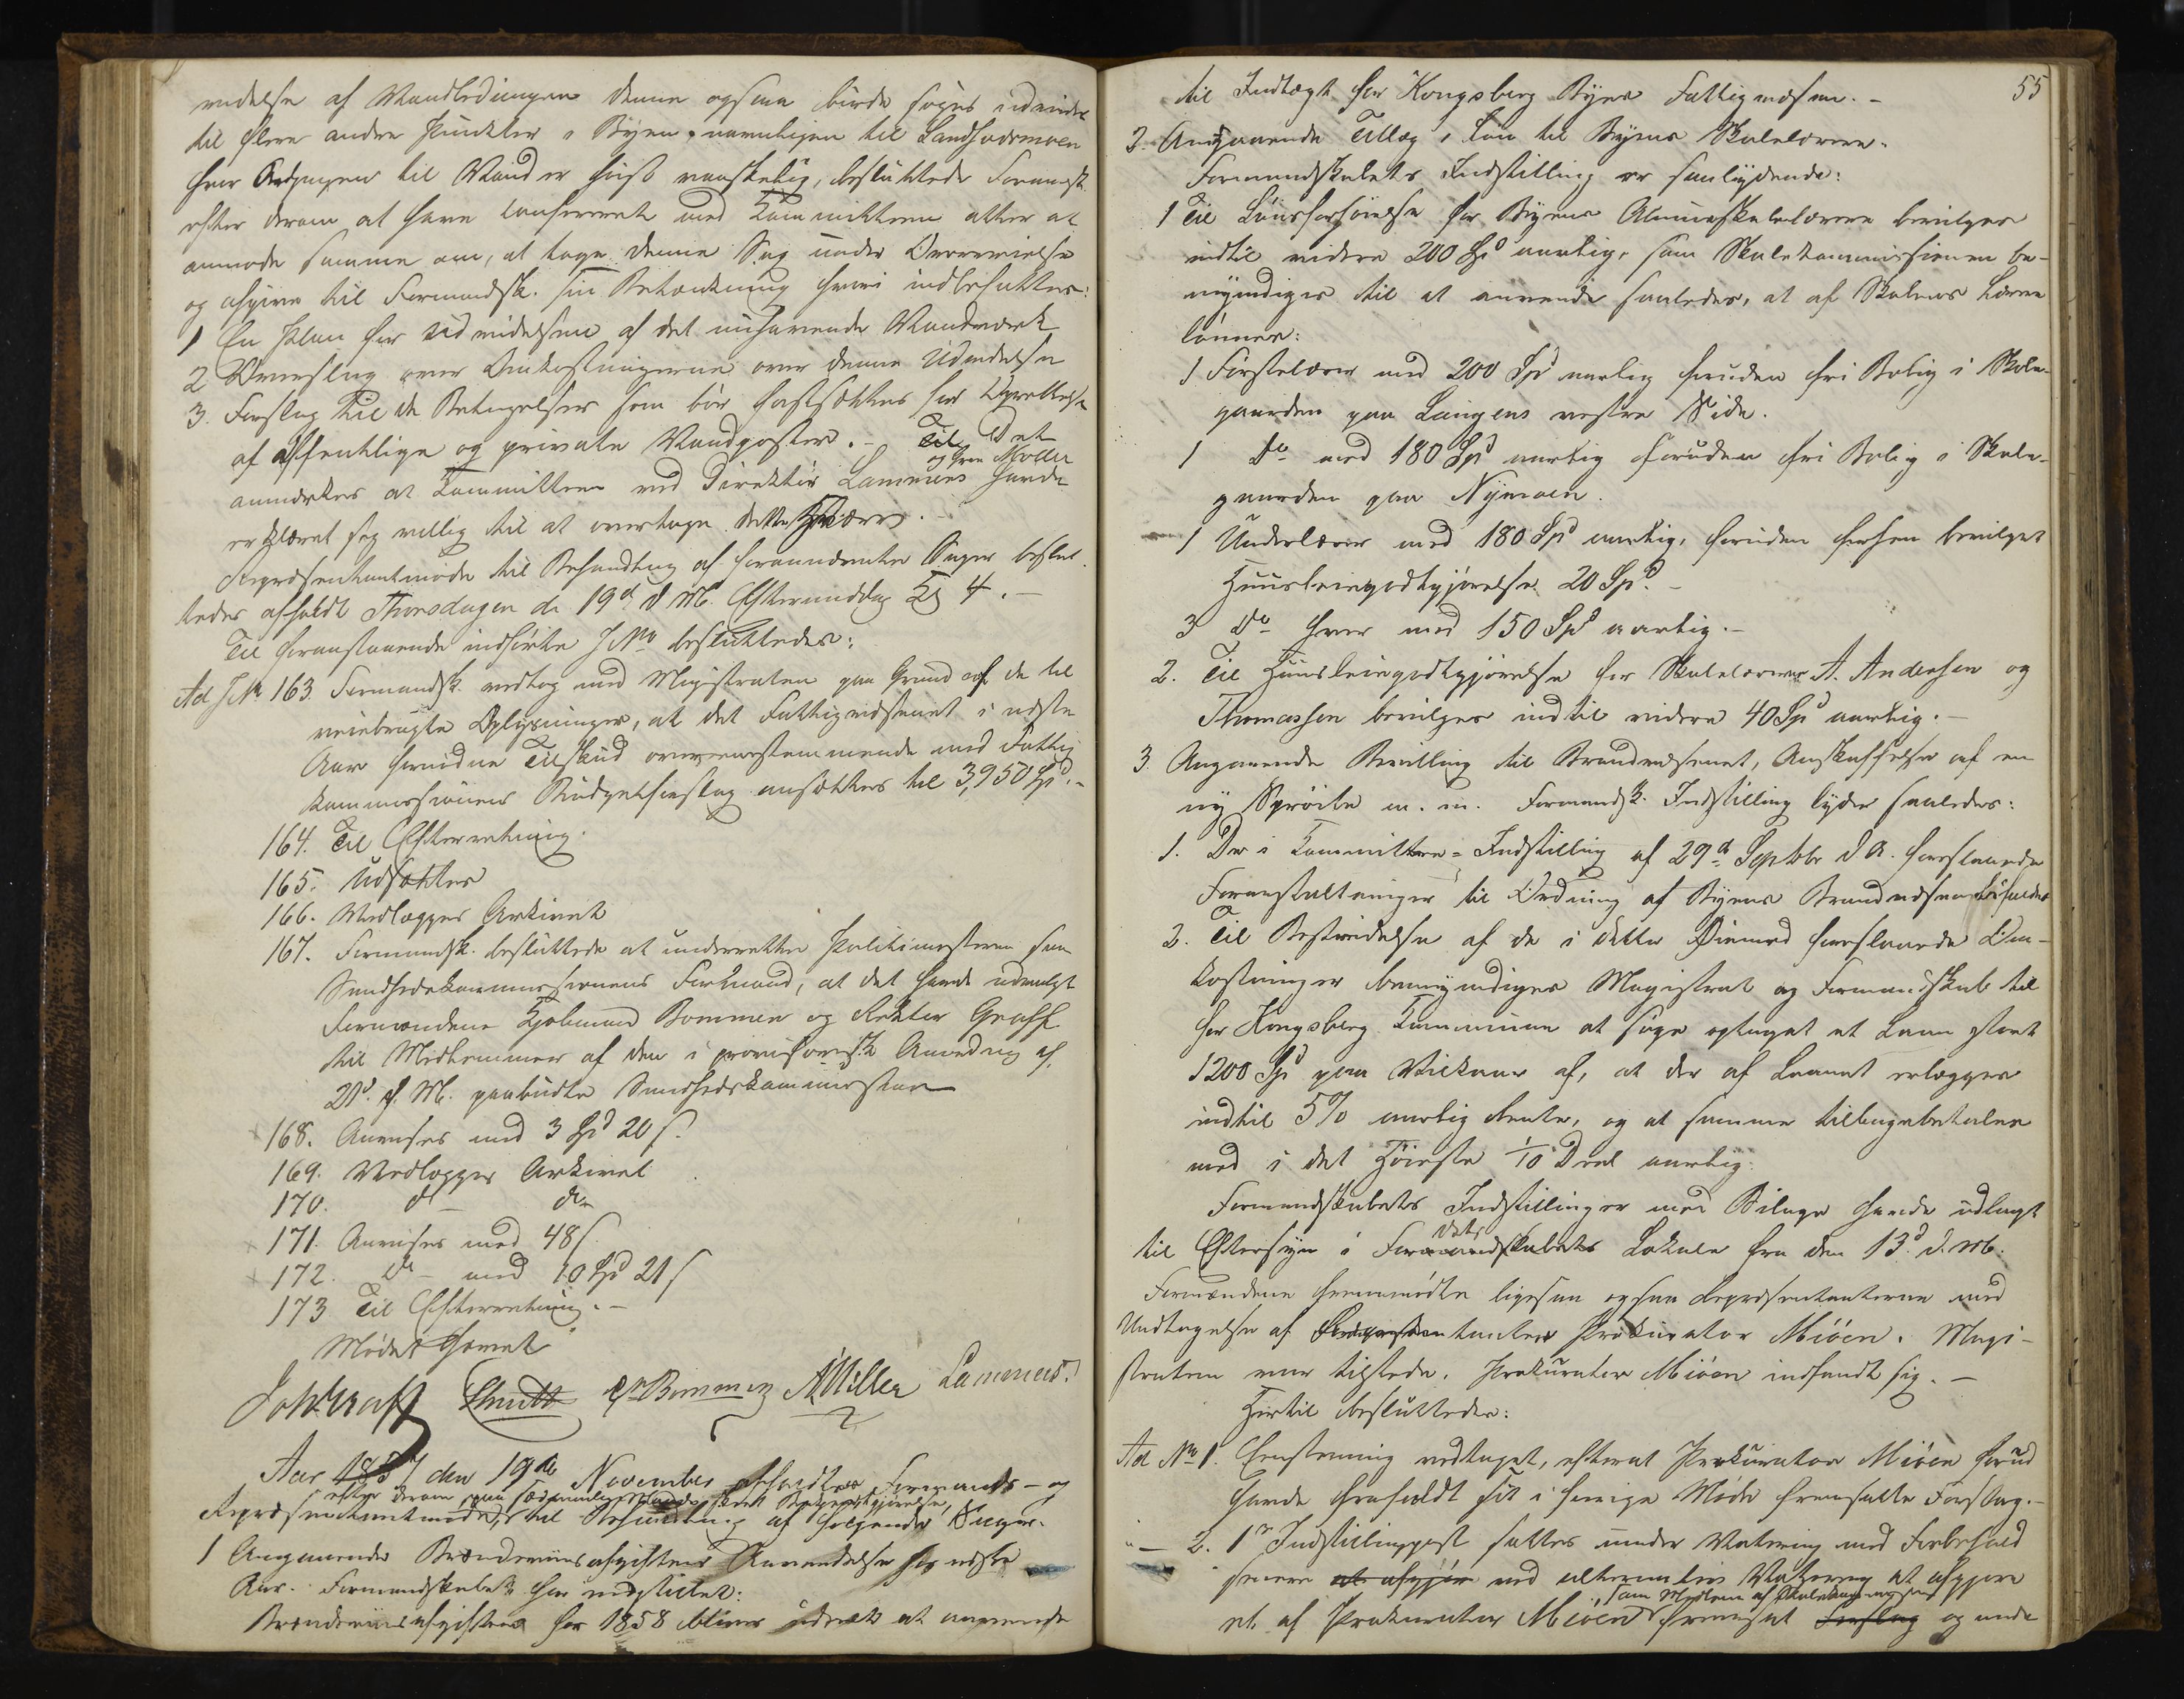 videlse af Vandledningen denne ogsaa burde søges udvidet
til flere andre Punkter i Byen, navnligen til Sandsværmoen
hvor Adgangen til Vand er høist vanskelig, besluttede Formandsk.
efter derom at have confereret med Kommitteen atter at
anmode samme om, at tage denne Sag under Overveielse
og afgive til Formandsk. sin Betænkning hvori indbefattes:
1 En Plan for Udvidelsen af det nuhavende Vandværk
2 Overslag over Omkostningerne over denne Udvidelse
3. Forslag til de Betingelser som bør fastsættes for Oprettelse
af offentlige og private Vandposter. – Det
og Hrr Møller
anmærkes at Kommitteen ved Direktør Lammers havde
erklæret sig villig til at overtage dette Hverv.
Repræsentantmøde til Behandling af forannævnte Sager beslut-
tedes afholdt Thorsdagen de 19d d. M. Eftermiddag Kl 4. –
Til foranstaaende indførte J.No besluttedes:
Ad J.No 163 Formandsk. vedtog med Magistraten paa Grund af de til
veiebragte Oplysninger, at det Fattigvæsenet i næste
Aar fornødne Tilskud overeensstemmende med Fattig
kommissionens Budgetforslag ansættes til 3,950 Spd. –
164. Til Efterretning.
165. Udsættes
166. Vedlægges Arkivet
167. Formandsk. besluttede at underrette Politimesteren som
Sundhedskommissionens Formand, at det havde udvalgt
Formændene Kjøbmand Bommen og Rektor Graff
til Medlemmer af den i provisorisk Anordning af
20d. f. M. paabudte Sundhedskommission
168. Anvises med 3 Spd 20 s.
169. Vedlægges Arkivet
170. do – do –
171. Anvises med 48 s
172. do – med 10 Spd 21 s
173 Til Efterretning. –
Mødet hævet
Joh Graff Schmidt Bommen Møller Lammers.
Aar 1857 den 19de November afholdtes Formands- og
efter derom paa sædvanlig Maade skeet Bekjendtgjørelse,
Repræsentantmøde, til Behandling af følgende Sager.
1 Angaaende Brændeviinsafgiftens Anvendelse for næste
Aar. Formandskabet har indstillet:
Brændeviinsafgiften for 1858 bliver at anvende
55
til Indtægt for Kongsberg Byes Fattigvæsen. –
2. Angaaende Tillæg i Løn til Byens Skolelærere.
Formandskabets Indstilling er saalydende:
1 Til Lønsforhøielse for Byens Almueskolelærere bevilges
indtil videre 200 Spd aarlig, som Skolekommissionen be-
myndiges til at anvende saaledes, at af Skolens Lærere
lønnes:
1 Førstelærer med 200 Spd aarlig foruden fri Bolig i Skole-
gaarden paa Laugens vestre Side.
1 do med 180 Spd aarlig foruden fri Bolig i Skole-
gaarden paa Nymoen.
1 Underlærer med 180 Spd aarlig, foruden forhen bevilget
Huusleiegodtgjørelse 20 Spd. –
3 do hver med 150 Spd aarlig. –
2. Til Huusleiegodtgjørelse for Skolelærerne A. Andersen og
Thomassen bevilges indtil videre 40 Spd aarlig. –
3. Angaaende Bevilling til Brandvæsenet, Anskaffelse af en
ny Sprøite m. m. Formandsk. Indstilling lyder saaledes:
1. De i Kommittee-Indstilling af 29de Septbr d. A. foreslaaede
Foranstaltninger til Ordning af Byens Brandvæsen bifaldes
2. Til Bestridelse af de i dette Øiemed foreslaaede Om-
kostninger bemyndiges Magistrat og Formandskab til
for Kongsberg Kommune at søge optaget et Laan stort
1200 Spd paa Vilkaar af, at der af Laanet erlægges
indtil 5% aarlig Rente, og at samme tilbagebetales
med i det Høieste 1/10 Deel aarlig.
Formandskabets Indstillinger med Bilage havde udlagt
dets
til Eftersyn i Formandskabets Lokale fra den 13d d. M.
Formændene fremmødte ligesaa ogsaa Repræsentanterne med
Undtagelse af Repræsentanten Prokurator Miöen. Magi-
straten var tilstede. Prokurator Miöen indfandt sig. –
Hertil besluttedes:
Ad No 1. Eenstemmig vedtaget, efterat Prokurator Miöen forud
havde frafaldt sit i forrige Møde fremsatte Forslag. –
" – 2. 1ste Indstillingspost sattes under Votering med Forbehold
senere at afgjøre ved alternativ Votering at afgjøre
som Medlem af Skolekommissionen
et af Prokurator Miöen fremsat Forslag og andre